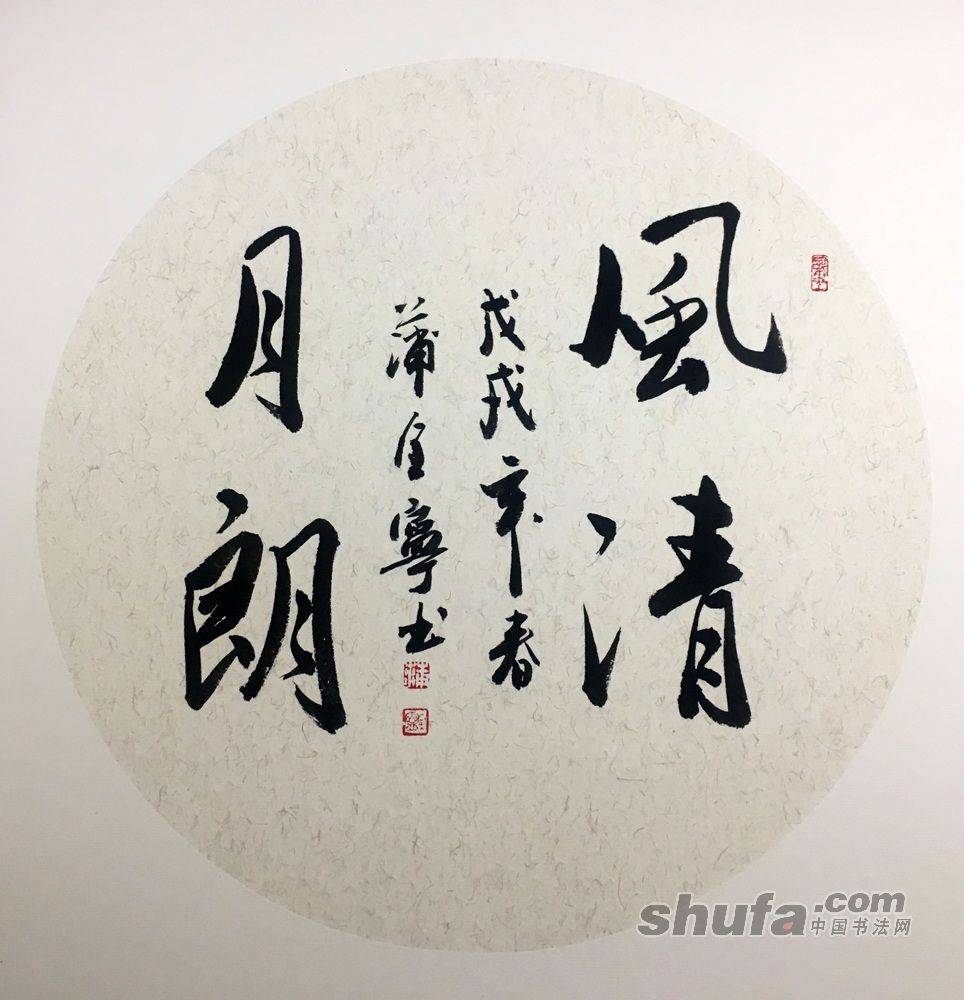 風清
月朗
戊戌年春
蒲全寧书
shufa.com
中国书法网